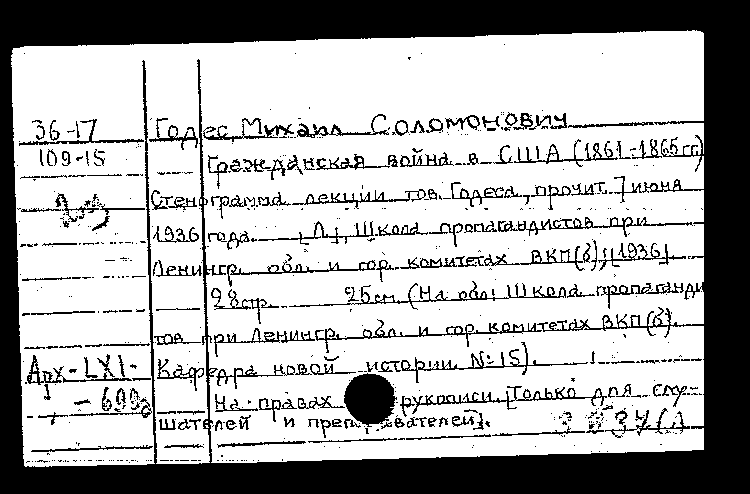 36-17 Годес, Михаил Соломонович
109-15 Гражданская война в США (1861-1865 гг)
Стенограмма лекции тов. Годеса, прочит. 7 июня
1936 года. [Л], Школа пропагандистов при
Ленингр. обл. и гор. комитетах ВКП(б), [1936]
28 стр. 25 см. (На обл: Школа пропаганди
тов при Ленингр. обл. и гор. комитетах ВКП(б).
Арх-LXI- Кафедра новой истории. №15).
На правах рукописи. [Только для слу-
шателей и преп авателей].